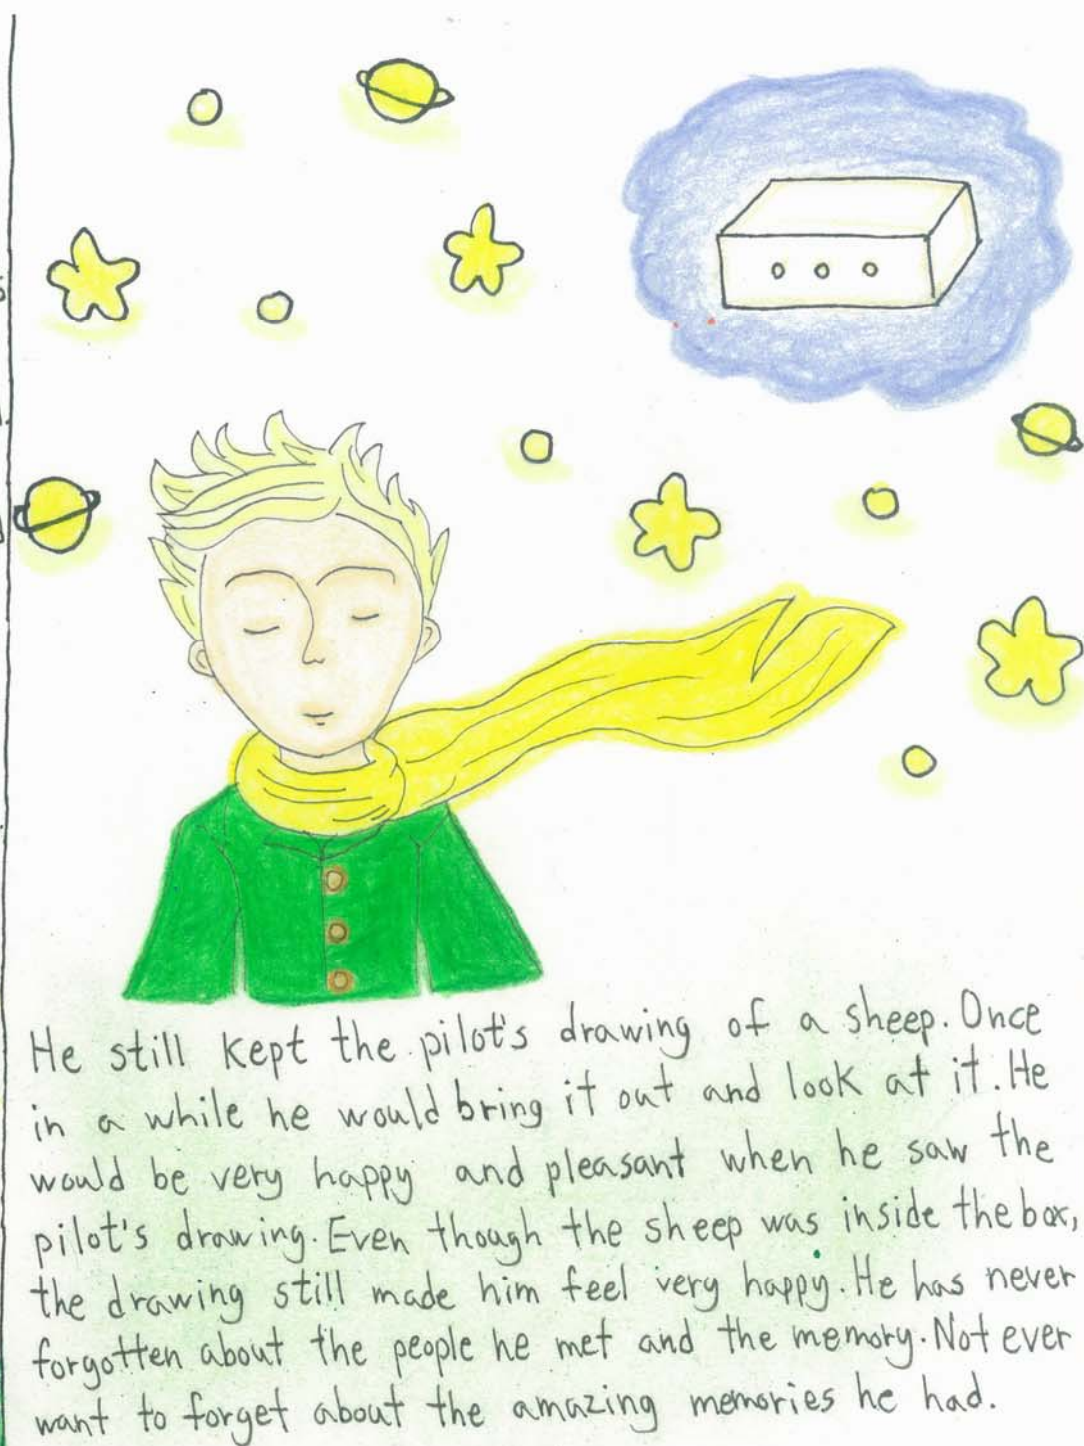 He still kept the pilot's drawing of a sheep. Once
in a while he would bring it out and look at it. He
would be very happy and pleasant when he saw the
pilot's drawing. Even though the sheep was inside the box,
the drawing still made him feel very happy. He has never
forgotten about the people he met and the memory. Not ever
want to forget about the amazing memories he had.